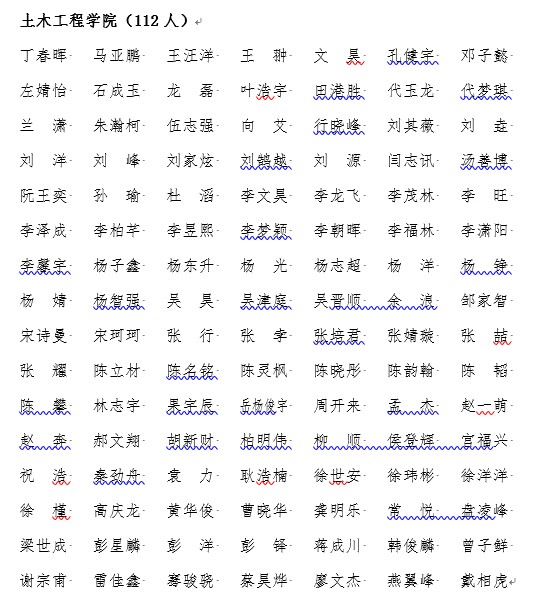 土木工程学院（112 人）
丁春晖 马亚鹏 王汪洋 王翀 文昊 孔健宇 邓子懿
左婧怡 石成玉 龙磊 叶浩宇 田港胜 代玉龙 代梦琪
兰潇 朱瀚柯 伍志强 向艾 行晓峰 刘其薇 刘垚
刘洋 刘峰 刘家炫 刘鹤越 刘源 闫志讯 汤善博
阮王奕 孙瑜 杜滔 李文昊 李龙飞 李茂林 李旺
李泽成 李柏芊 李昱熙 李梦颖 李朝晖 李福林 李潇阳
李馨宇 杨子鑫 杨东升 杨光 杨志超 杨洋 杨铮
杨婧 杨智强 吴昊 吴津庭 吴晋顺 余浪 邹家智
宋诗曼 宋珂珂 张行 张李 张培君 张婧璇 张喆
张耀 陈立材 陈名铭 陈灵枫 陈晓彤 陈韵翰 陈韬
陈攀 林志宇 果宇辰 岳杨俊宇 周开来 孟杰 赵一萌
赵奔 郝文翔 胡新财 柏明伟 柳顺 侯登辉 宫福兴
祝浩 秦劲舟 袁力 耿浩楠 徐世安 徐玮彬 徐洋洋
徐槿 高庆龙 黄华俊 曹晓华 龚明乐 常悦 盘凌峰
梁世成 彭星麟 彭洋 彭铎 蒋成川 韩俊麟 曾子鲜
谢宗甫 雷佳鑫 骞骏骁 蔡昊烨 廖文杰 燕翼峰 戴相虎